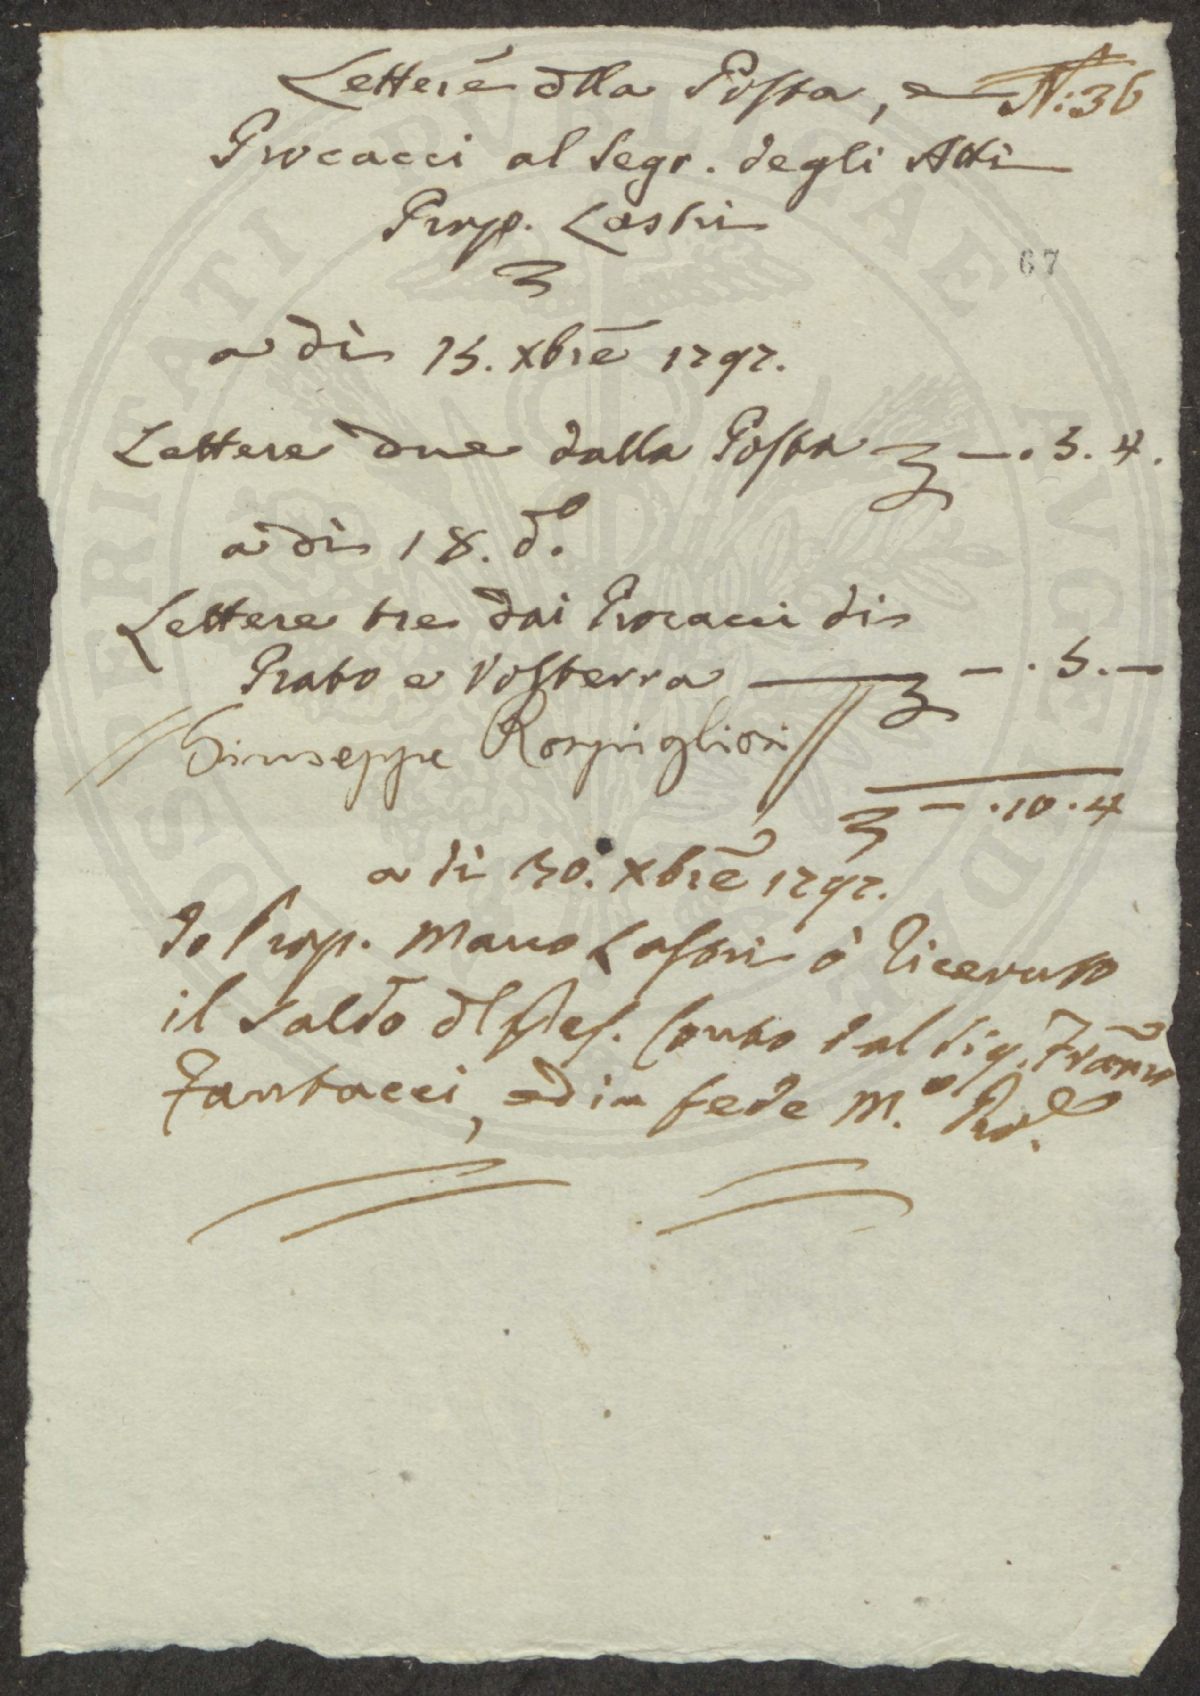 Lettere dlla Posta, e N: 36
Procacci al Segr. degli Atti
Prop. Lastri
67
a dì 15. Xbre 1797.
Lettere due dalla Posta —. 5. 4.
a dì 18. do.
Lettere tre dai Procacci di
Prato e Volterra — —. 5. —
Giuseppe Rospigliosi
—. 10. 4
a dì 30. Xbre 1797.
Io Prop. Marco Lastri ò ricevuto
il saldo dl Conto dal Sig.
Fantacci, ed in fede M.o